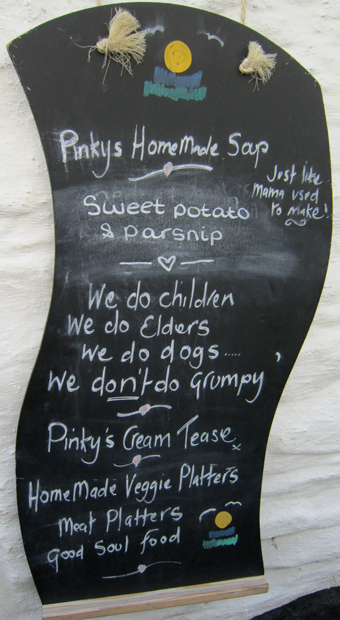 Pinkys HomeMade Soap
Just like
Mama used
to make!
Sweet potato
& parsnip
We do children
We do Elders
We do dogs.....
We don't do Grumpy
Pinky's Cream Tease x
HomeMade Veggie Platters
Meat Platters
Good Soul food